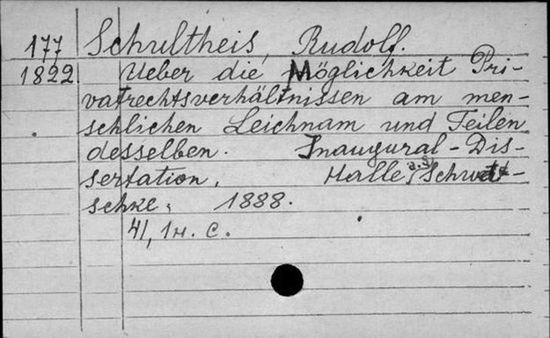 177 Schultheis, Rudolf.
1822 Ueber die Möglichkeit Pri-
vatrechtsverhältnissen am men-
schlichen Leichnam und Teilen
desselben. Inaugural-Dis-
sertation. Halle a.S., Schwet-
schke, 1888.
41, 1н. С.